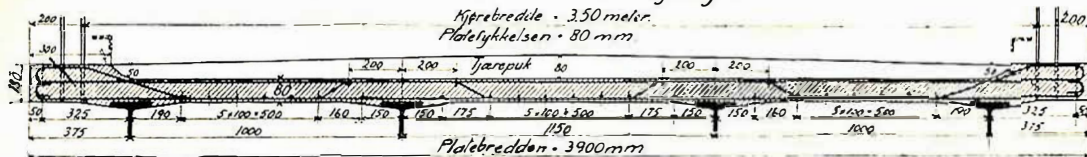 Kjørebredde - 3.50 meter.
Platetykkelsen - 80 mm
200 200
300 50 200 200 Tjærepuk 80 200 200 50
180 80
50 325 190 5×100=500 160 150 150 175 5×100=500 175 150 150 160 5×100=500 190 325
375 1000 1150 1000 375
Platebredden - 3900 mm